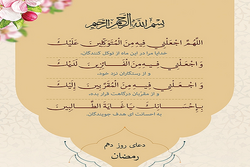 بسم الله الرحمن الرحیم
اَللّهُمَّ اجْعَلْنِي فِيهِ مِنَ الْمُتَوَكِّلِينَ عَلَيْكَ
خدایا مرا در این ماه از توکل کنندگان
وَ اجْعَلْنِي فِيهِ مِنَ الْفَائِزِينَ لَدَيْكَ
و از رستگاران نزد خود
وَ اجْعَلْنِي فِيهِ مِنَ الْمُقَرَّبِينَ إِلَيْكَ
و از مقربان درگاهت قرار بده،
بِإِحْسَانِكَ يَا غَايَةَ الطَّالِبِينَ
به احسانت ای هدف جویندگان.
دعای روز دهم
رمضان